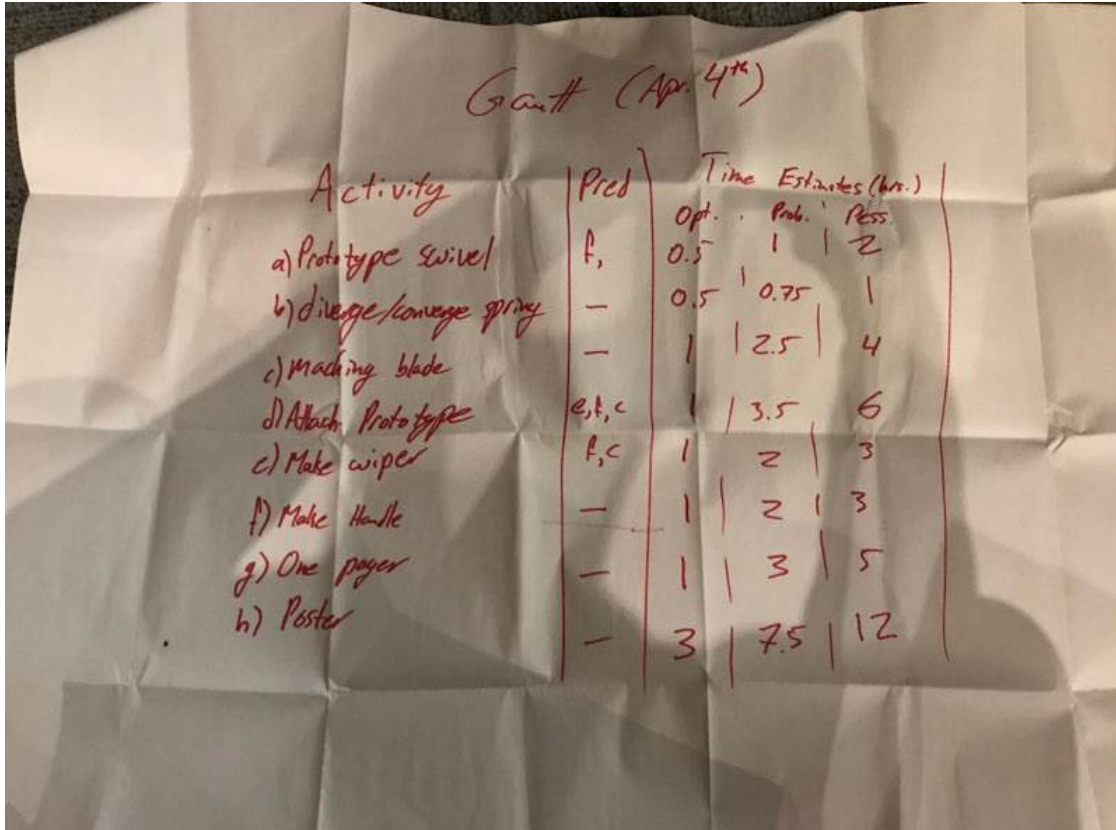 Gantt (Apr. 4th)
Activity | Pred | Time Estimates (hrs.)
Opt. Prob. Pess.
a) Prototype swivel | f, | 0.5 | 1 | 2
b) diverge/converge spring | — | 0.5 | 0.75 | 1
c) Maching blade | — | 1 | 2.5 | 4
d) Attach Prototype | e,f,c | 1 | 3.5 | 6
e) Make wiper | f,c | 1 | 2 | 3
f) Make Handle | — | 1 | 2 | 3
g) One pager | — | 1 | 3 | 5
h) Poster | — | 3 | 7.5 | 12